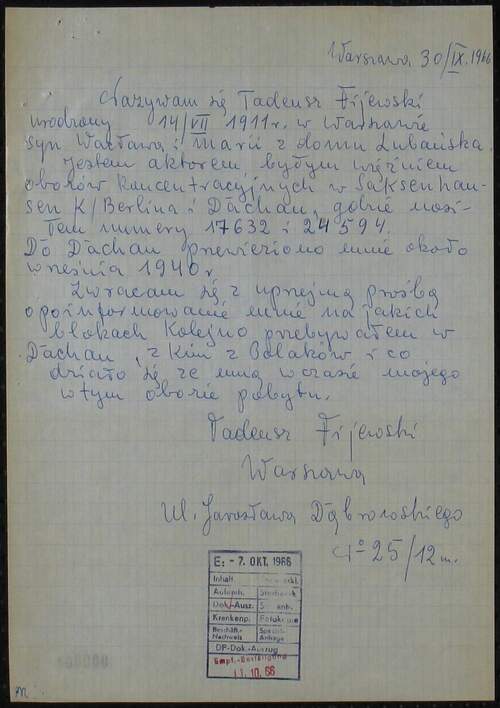 Warszawa 30/IX.1966
Nazywam się Tadeusz Fijewski
urodzony 14/VII 1911 r. w Warszawie
syn Wacława i Marii z domu Lubańska.
Jestem aktorem, byłym więźniem
obozów koncentracyjnych w Saksenhau-
sen K/Berlina i Dachau, gdzie nosi-
łem numery 17632 i 24594.
Do Dachau przewieziono mnie około
września 1940 r
Zwracam się z uprzejmą prośbą
o poinformowanie mnie na jakich
blokach kolejno przebywałem w
Dachau, z kim z Polaków i co
działo się ze mną w czasie mojego
w tym obozie pobytu.
Tadeusz Fijewski
Warszawa
ul. Jarosława Dąbrowskiego
25/12 m.
E: - 7. OKT. 1966
Inhaft.
Autoph. Sterbeurk
Dok.-Ausz.
Krankenp. Fotokopie
Beschäft.-
Nachweis
DP-Dok.-Auszug
Empf.-Bestätigung
11.10.66